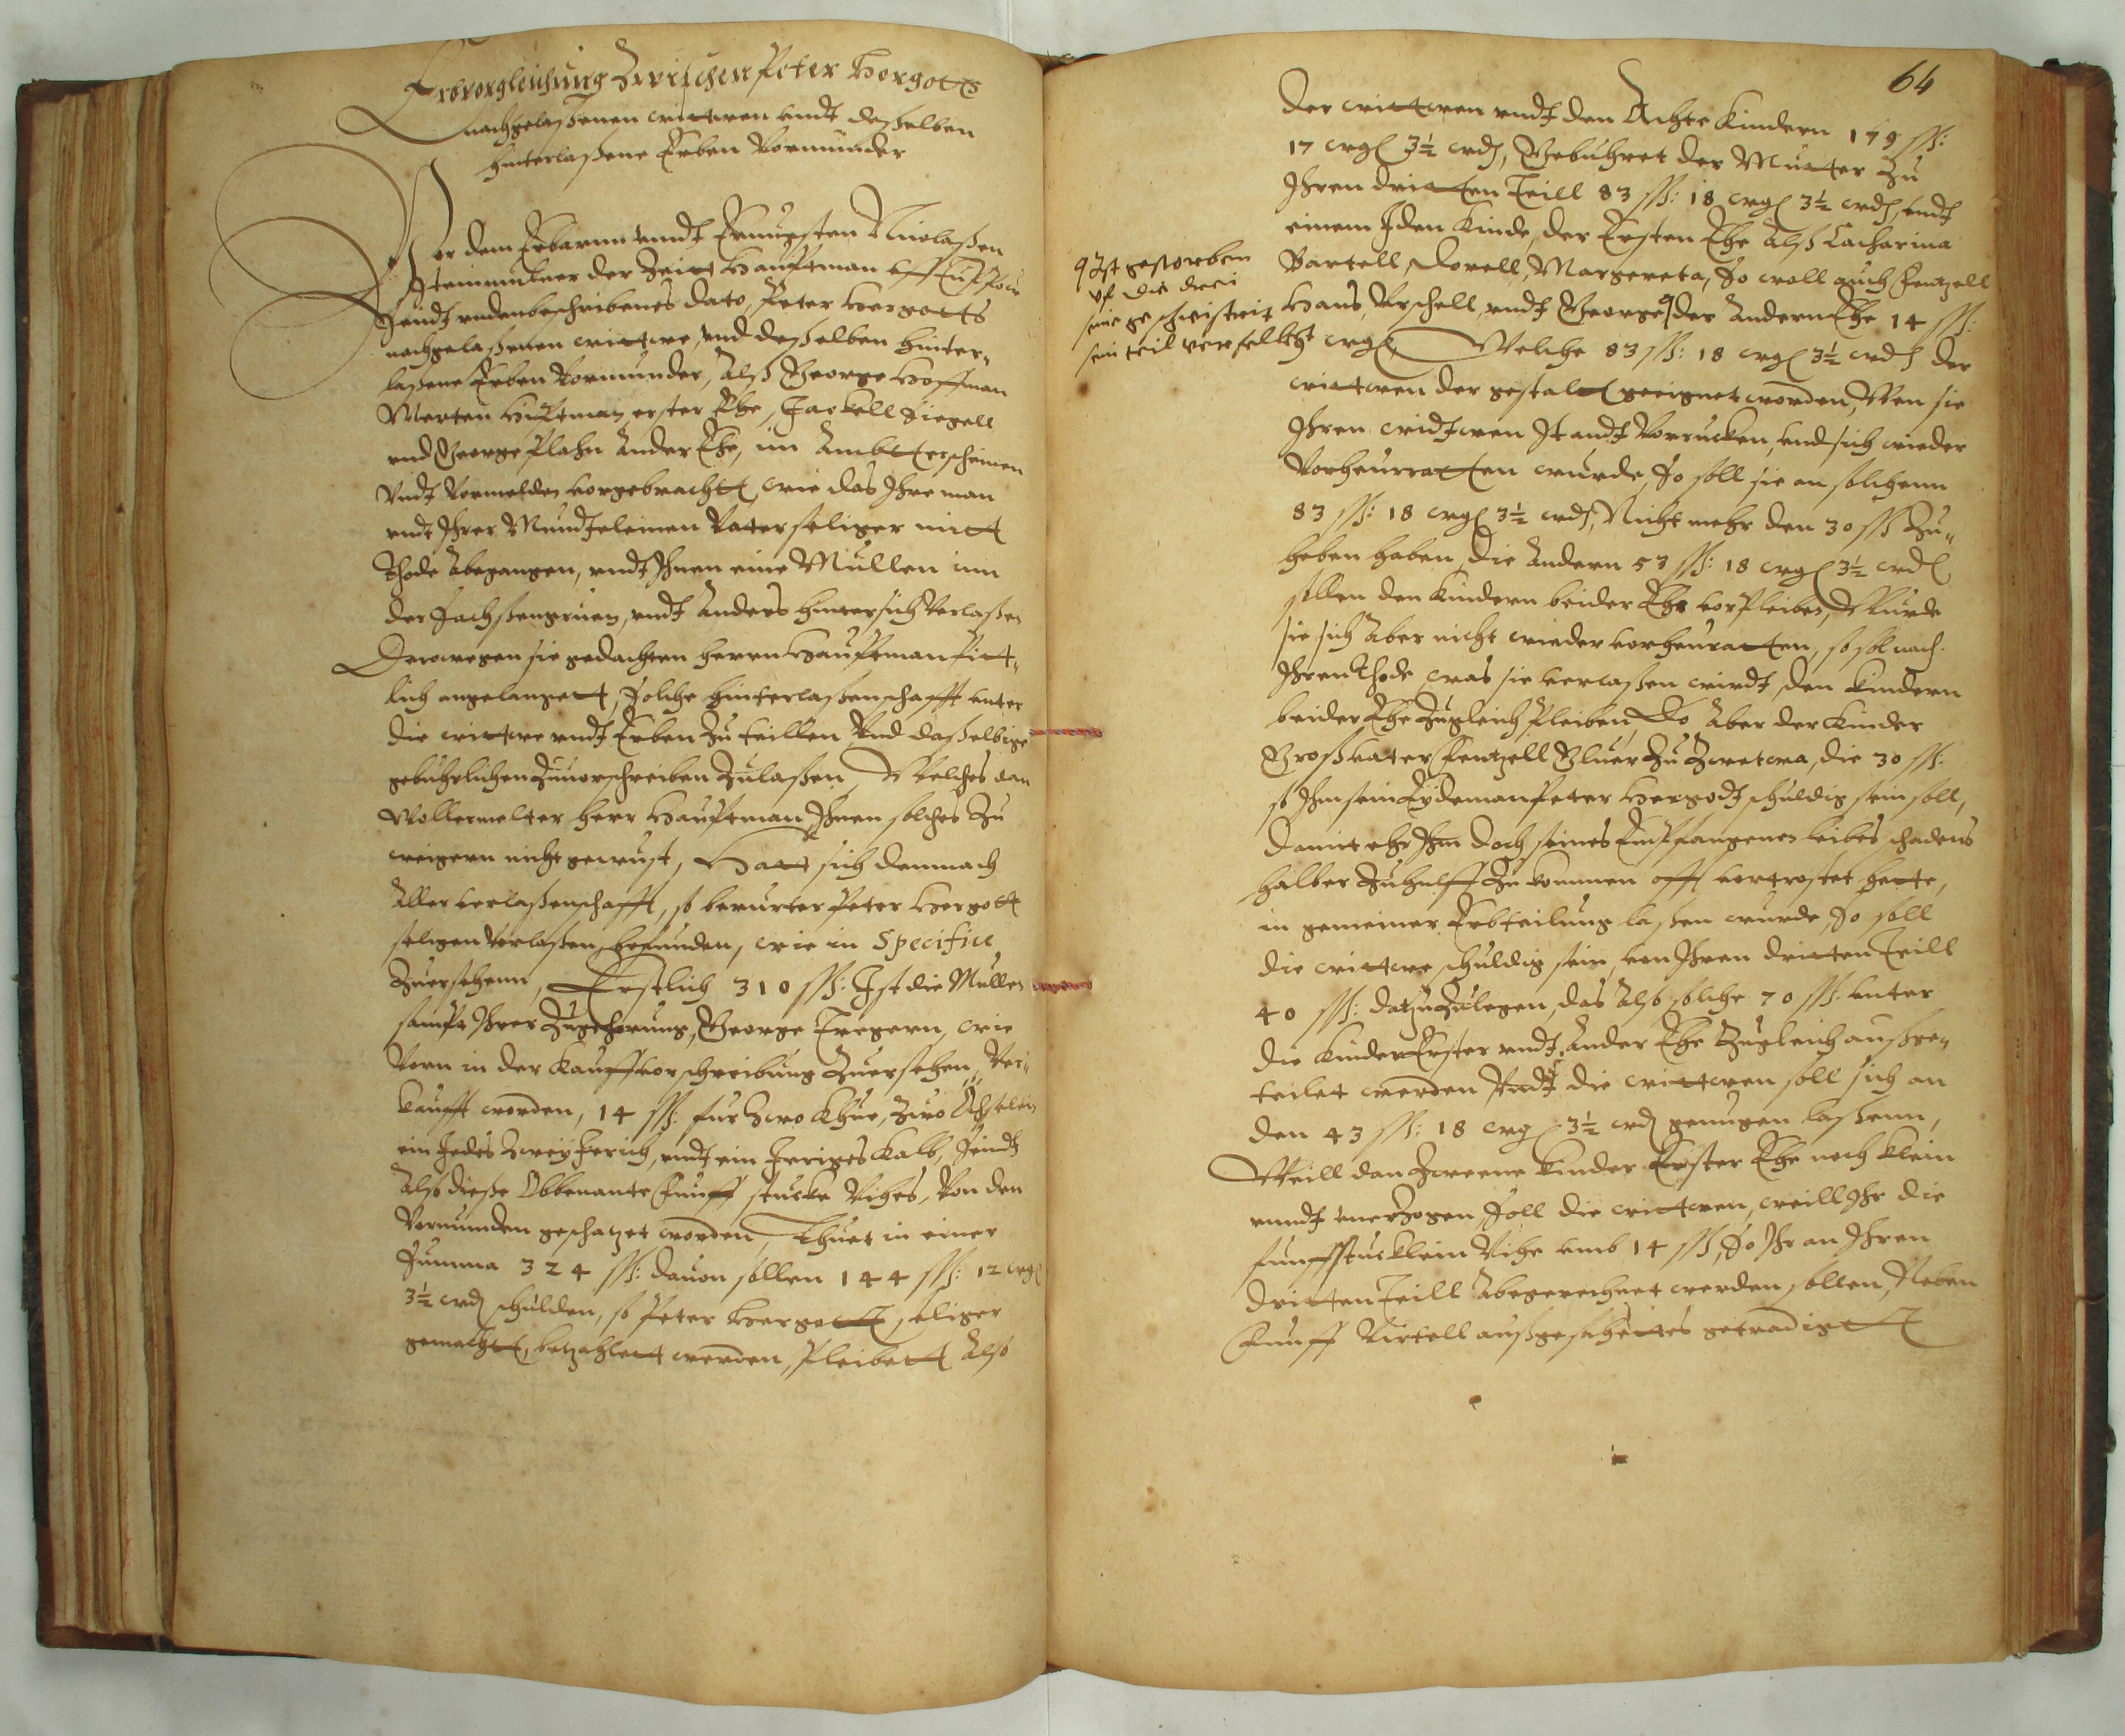 Erbvorgleichung Zwischen Peter Hergotts
nachgelaßenen wittwen undt deßelben
hinterlaßene Erben Vormünder
Vor dem Erbarnn unndt Ernvgesten Nicolaßen
der Zeitt Hauptman uff
seindt undenbeschribenes dato, Peter Hergotts
nachgelaßenen wittwe, und deßelben hinter„
laßene Erben Vormünder, Alß George Hoffman
Merten Hüttman erster Ehe, Jackell Siegell
und George Plahn Ander Ehe, im Ambtt erscheinen
Undt Vormelden vorgebrachtt, wie das Ihre man
undt Ihrer Mundeleinen Vatter seliger mitt
Thode Abegangen, undt Ihnen eine Müllen im
der undt Anders hintersich Verlaßen
Derowegen sie gedachten herrn Hauptman pitt„
lich angelangett, solche hinterlaßenschafft unter
die wittwe undt Erben Zu teillen Und daßelbige
gebührlichen Zuuorschreiben Zulaßen, Welches dan
Wollermelter herr Hauptman Ihnen solches Zu
weigern nicht gewust, Hatt sich demnach
Aller verlaßenschafft, so berurter Peter Hergott
seliger Verlaßen befunden, wie in Specifice
Zuersehenn, Erstlich 310 ß: Ist die Müllen
sampt Ihrer Zugehorung, George Tregern, wie
Vorn in der Kauffvorschreibung Zuersehen, Ver„
kaufft worden, 14 ß: fur Zwo Khue, Zwo Öchselein
ein Jedes Zwey Jerich, undt ein Jeriges Kalb, seindt
Also dieße Obbenante Funff stucke Vihes, Von den
Vormunden geschatzet worden, Thuet in einer
Summa 324 ß: dauon sollen 144 ß: 12 wg
3½ wd schulden, so Peter Hergott seliger
gemachtt, betzahlett werden, Pleibett Also
64
der wittwen undt den Achte Kindern 179 ß:
17 wg 3½ wd, Gebühret der Mutter Zu
Ihren dritten Teill 83 ß: 18 wg 3½ wd, undt
einem Iden Kinde, der Ersten Ehe Alß Catharina
Bartell, Dorell, Margereta, So woll auch Fentzell
Hans, Urschell, undt George der Andern Ehe 14 ß:
wg Welche 83 ß: 18 wg 3½ wd der
wittwen der gestaldt geeignet worden, Wen sie
Ihren widtwen Standt Vorrucken, und sich wieder
Vorheurratten wurde, So soll sie an solchenn
83 ß: 18 wg 3½ wd, Nicht mehr den 30 ß Zu„
heben haben, die Andern 53 ß: 18 wg 3½ wd
sollen den Kindern beider Ehe vorpleiben, Wurde
sie sich Aber nicht wieder vorheuratten, so sol nach
Ihren Thode, was sie verlaßen wirdt, den Kindern
beider Ehe Zugleich Pleiben, Do Aber der Kinder
Großvater Fentzell Zu die 30 ß:
so Ihm sein Eydeman Peter Hergodt schuldig sein soll,
Damit ehr Ihm doch seines Entpfangenen leibes schadens
halber Zuhulff Zu kommen offt vortrostet hette,
in gemeiner Erbteilung laßen wurde, So soll
die wittwe schuldig sein, von Ihren dritten Teill
40 ß: datzu Zulegen, das Also solche 70 ß: unter
die Kinder Erster undt Ander Ehe Zugleich außge„
teilet werden Undt die wittwen soll sich an
den 43 ß: 18 wg 3½ wd genugen laßenn,
Weill dan Zweene Kinder Erster Ehe noch klein
unndt unerZogen, Soll die wittwen, weill Ihr die
funffstucklein Vihe umb 14 ß, so Ihr an Ihren
dritten Teill Abgerechnet werden sollen, Neben
Funff Virtell getradigtt
Ist gestorben
uf die drei
sein geschwistrit
sein teil verfellet